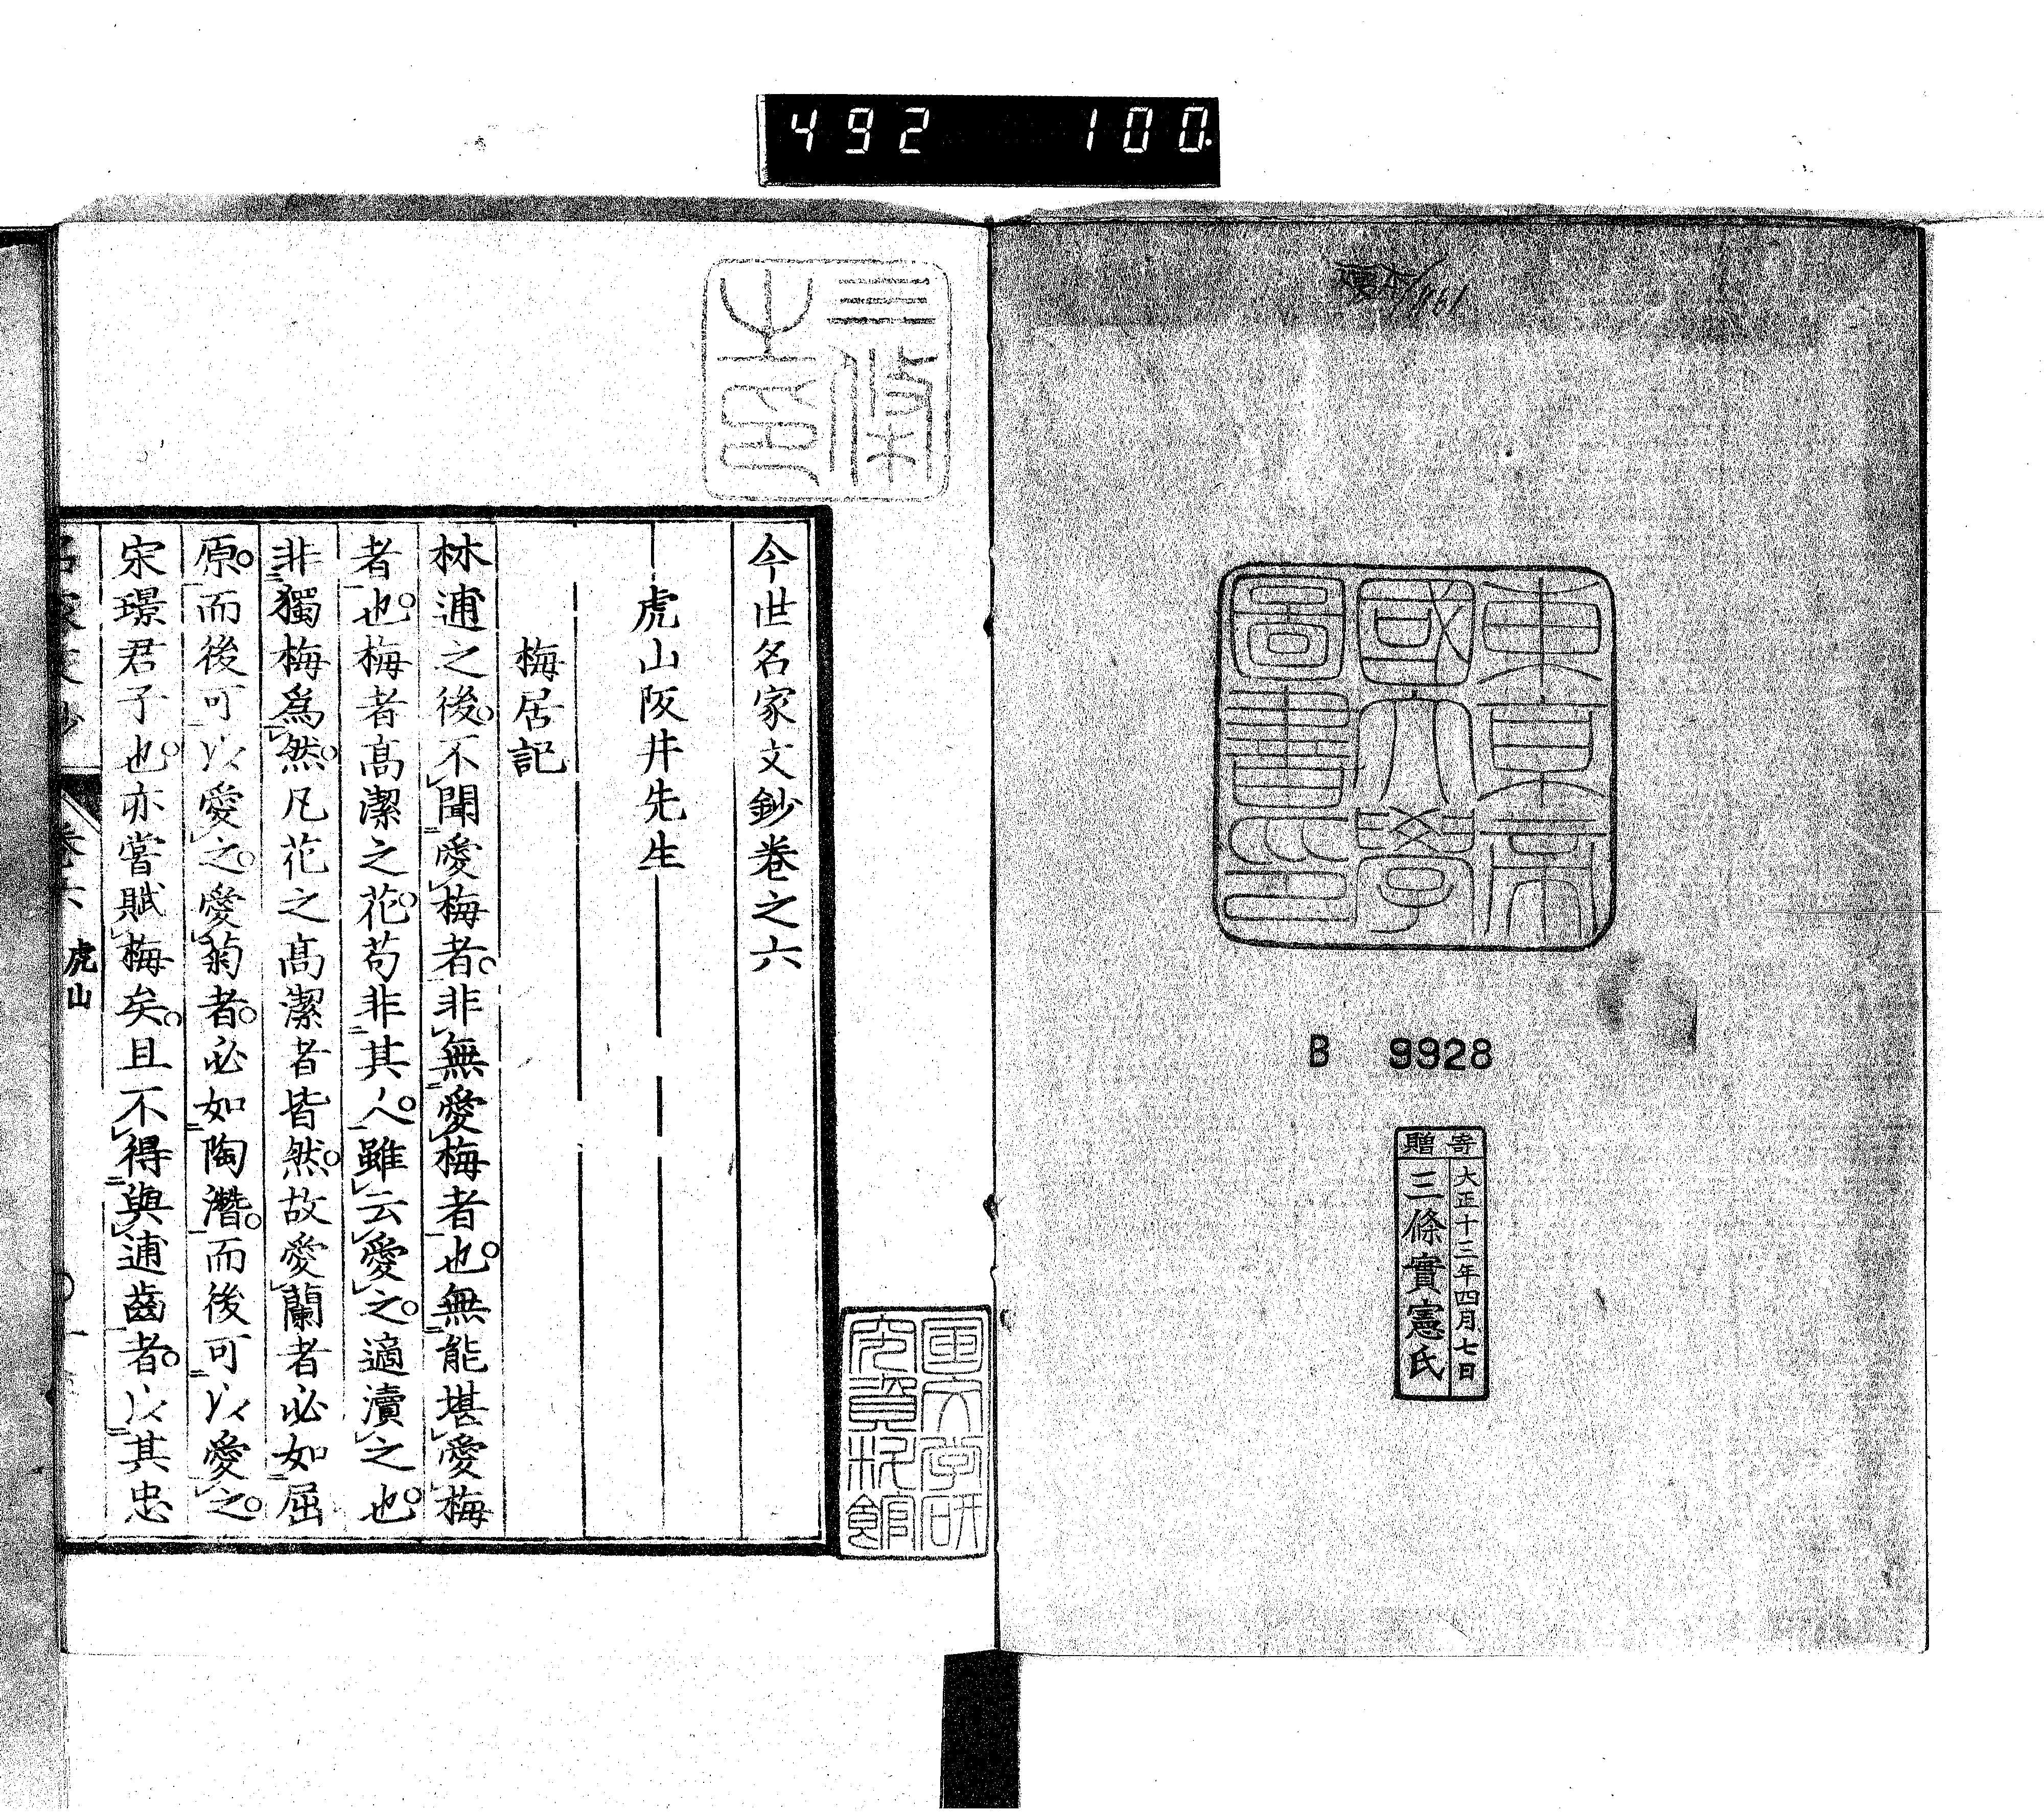 492 100.
東京帝
國大學
圖書印
B 9928
寄贈
大正十三年四月七日
三條實憲氏
三條
國文学研
究資料館
今世名家文鈔卷之六
虎山阪井先生
梅居記
林逋之後。不聞愛梅者。非無愛梅者也。無能堪愛梅
者也。梅者高潔之花。苟非其人。雖云愛之。適瀆之也。
非獨梅爲然。凡花之高潔者皆然。故愛蘭者必如屈
原。而後可以愛之。愛菊者。必如陶潛。而後可以愛之。
宋璟君子也。亦嘗賦梅矣。且不得與逋齒者。以其忠
卷六 虎山